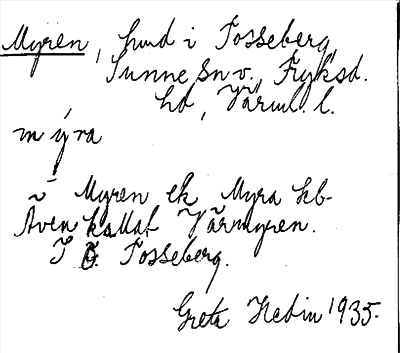 Myren, hmd i Fosseberg,
Sunne sn v., Fryksd.
hd, Värml. l.
mýra
Myren ek Myra kb-
Även kallat Värmyren.
I Ö. Fosseberg.
Greta Hedin 1935.